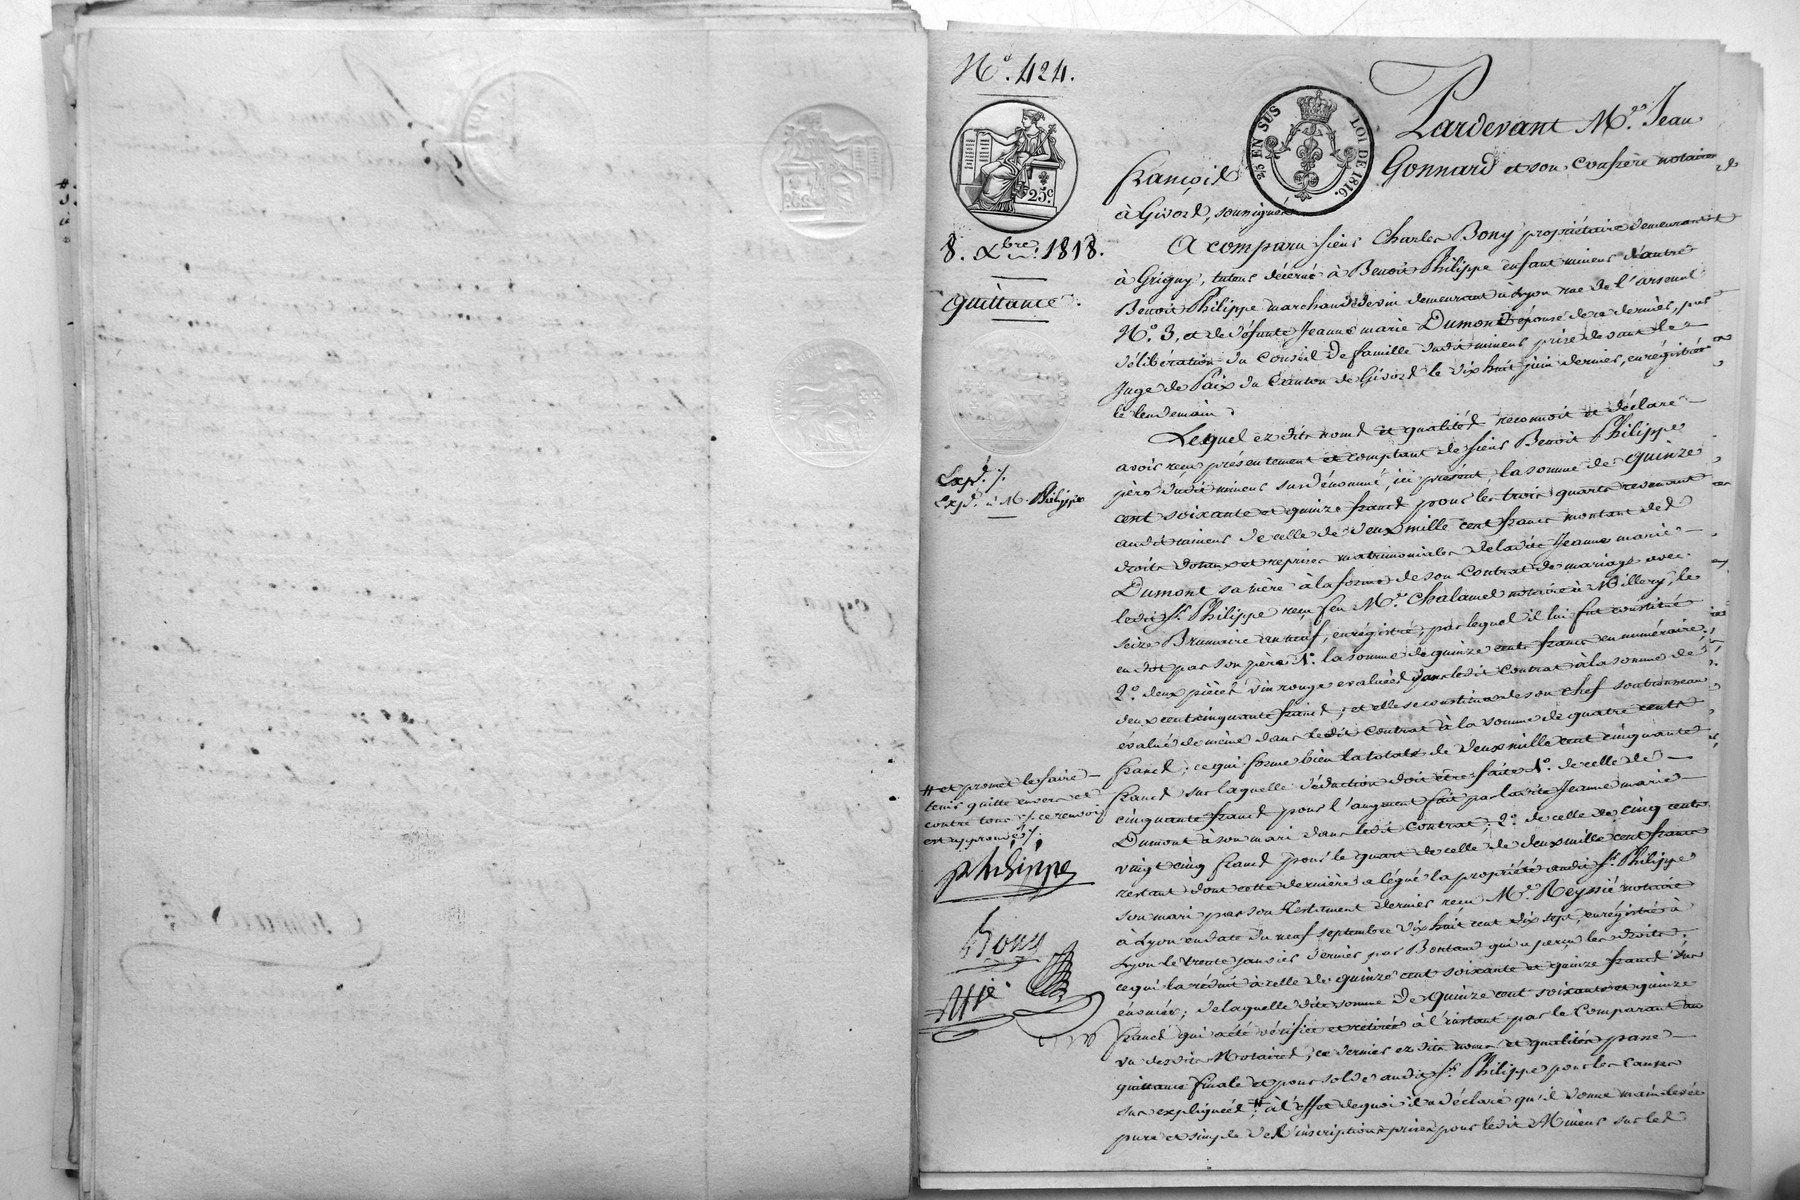 N.° 424.
25 EN SUS
LOI DE 1816.
25.c
8. Xbre. 1818.
quittance.
Exp.d /.
Exp.d à M. Philippe
Pardevant M.e Jean
François Gonnard et son confrère notaires
à Givors, soussignés
A comparu sieur Charles Bony propriétaire demeurant
à Grigny, tuteur décerné à Benoit Philippe enfant mineur d'autre
Benoit Philippe marchand de vin demeurant à Lyon rue de l'arsenal
N.° 3, et de défunte Jeanne marie Dumond épouse de ce dernier, par
délibération du Conseil de famille dudit mineur prise devant le
Juge de Paix du Canton de Givors le dix huit juin dernier, enrégistrée
le lendemain
Lequel ez dits noms et qualités reconnoit et déclare
avoir reçu présentement et comptant de sieur Benoit Philippe
père dudit mineur susdénommé, ici présent, la somme de quinze
cent soixante et quinze francs pour les trois quarts revenant
audit mineur de celle de deux mille cent francs montant des
droits dotaux et reprises matrimoniales de ladite Jeanne marie
Dumont sa mère à la forme de son contrat de mariage avec
ledit S.r Philippe reçu feu M.e Chalamel notaire à Millery, le
seize Brumaire an neuf, enrégistré, par lequel il lui fut constitué
en dot par son père 1.° la somme de quinze cents francs en numéraire,
2.° deux pièces vin rouge evaluées dans ledit contrat à la somme de
deux cent cinquante francs; et elle se constitua de son chef son trousseau
évalué de même dans ledit contrat à la somme de quatre cents
francs; ce qui forme bien la totale de deux mille cent cinquante
francs sur laquelle déduction doit être faite 1.° de celle de
cinquante francs pour l'augment fait par ladite Jeanne marie
Dumont à son mari dans ledit contrat; 2.° de celle de cinq cents
vingt cinq francs pour le quart de celle de deux mille cent francs
restant dont cette dernière a légué la propriété audit S.r Philippe
son mari par son testament dernier reçu M.e Reyssié notaire
à Lyon en date du neuf septembre dix huit cent dix sept, enrégistré à
Lyon le trente janvier dernier par Bontand qui a perçu les droits.
ce qui la réduit à celle de quinze cent soixante et quinze francs sus
énoncée; de laquelle dite somme de quinze cent soixante et quinze
francs qui a été vérifiée et retirée à l'instant par le Comparant au
vu desdits Notaires, ce dernier ez dits noms et qualités passe
quittance finale et pour solde audit S.r Philippe pour les causes
sus expliquées, # à l'effet de quoi il a déclaré qu'il donne main levée
pure et simple de l'inscription prise pour ledit Mineur sur les
# et promet le faire
tenir quitte envers et
contre tous /. ce renvoi
est approuvé /.
philippe
Bony